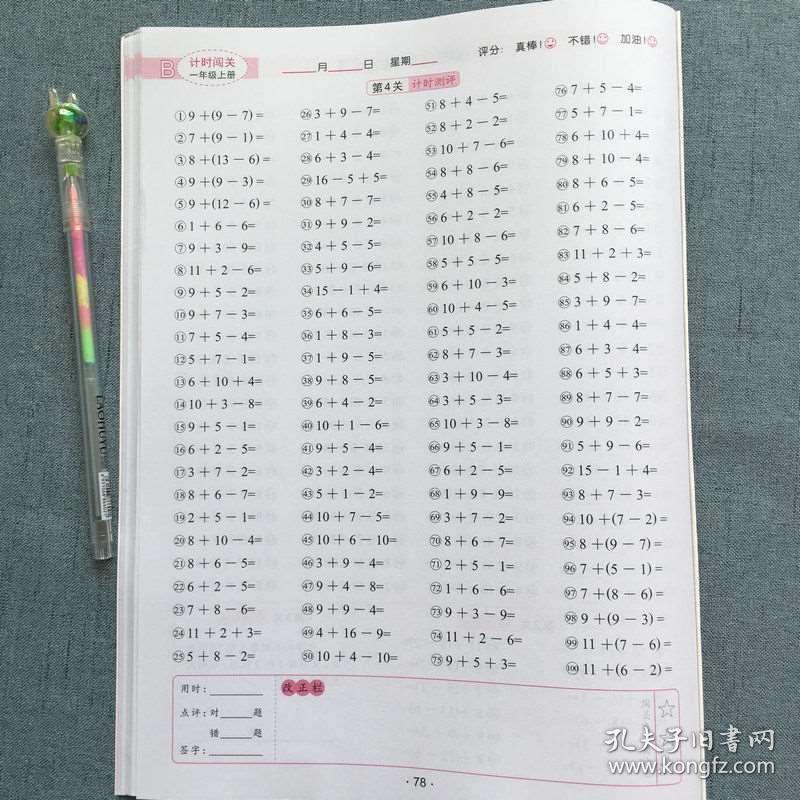 B
计时闯关
一年级上册
____月____日 星期____
评分: 真棒! 不错! 加油!
第4关 计时测评
①9+(9-7)=
②7+(9-1)=
③8+(13-6)=
④9+(9-3)=
⑤9+(12-6)=
⑥1+6-6=
⑦9+3-9=
⑧11+2-6=
⑨9+5-2=
⑩9+7-3=
⑪7+5-4=
⑫5+7-1=
⑬6+10+4=
⑭10+3-8=
⑮9+5-1=
⑯6+2-5=
⑰3+7-2=
⑱8+6-7=
⑲2+5-1=
⑳8+10-4=
㉑8+6-5=
㉒6+2-5=
㉓7+8-6=
㉔11+2+3=
㉕5+8-2=
㉖3+9-7=
㉗1+4-4=
㉘6+3-4=
㉙16-5+5=
㉚8+7-7=
㉛9+9-2=
㉜4+5-5=
㉝5+9-6=
㉞15-1+4=
㉟6+6-5=
㊱1+8-3=
㊲1+9-5=
㊳9+8-5=
㊴6+4-2=
㊵10+1-6=
㊶9+5-4=
㊷3+2-4=
㊸5+1-2=
㊹10+7-5=
㊺10+6-10=
㊻3+9-4=
㊼9+4-8=
㊽9+9-4=
㊾4+16-9=
㊿10+4-10=
51 8+4-5=
52 8+2-2=
53 10+7-6=
54 8+8-6=
55 4+8-5=
56 6+2-2=
57 10+8-6=
58 5+5-5=
59 6+10-3=
60 10+4-5=
61 5+5-2=
62 8+7-3=
63 3+10-4=
64 3+5-3=
65 10+3-8=
66 9+5-1=
67 6+2-5=
68 1+9-9=
69 3+7-2=
70 8+6-7=
71 2+5-1=
72 1+6-6=
73 9+3-9=
74 11+2-6=
75 9+5+3=
76 7+5-4=
77 5+7-1=
78 6+10+4=
79 8+10-4=
80 8+6-5=
81 6+2-5=
82 7+8-6=
83 11+2+3=
84 5+8-2=
85 3+9-7=
86 1+4-4=
87 6+3-4=
88 6+5+3=
89 8+7-7=
90 9+9-2=
91 5+9-6=
92 15-1+4=
93 8+7-3=
94 10+(7-2)=
95 8+(9-7)=
96 7+(5-1)=
97 7+(8-6)=
98 9+(9-3)=
99 11+(7-6)=
100 11+(6-2)=
用时:______
点评:对____题
错____题
签字:______
改正栏
·78·
孔夫子旧书网
www.kongfz.com